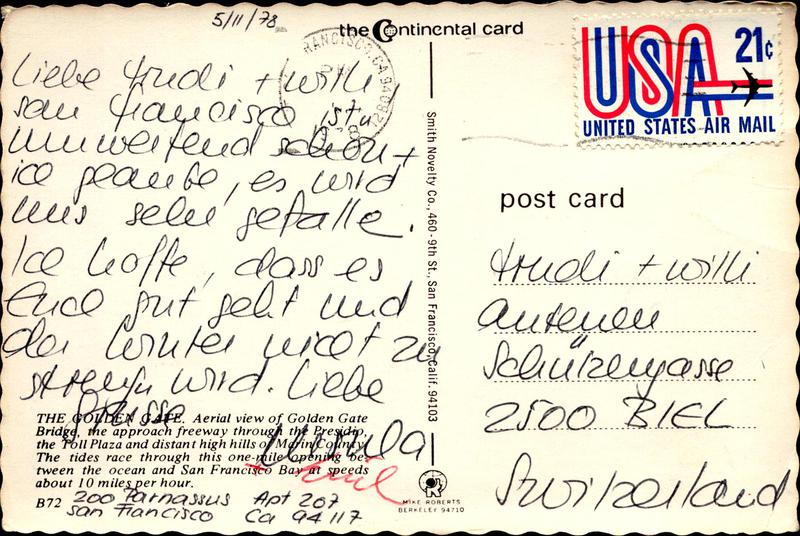 5/11/78
the Continental card
FRANCISCO, CA 940
USA 21¢
UNITED STATES AIR MAIL
Liebe Trudi + Willi
San Francisco ist
schön +
ich glaube, es wird
uns sehr gefalle.
Ich hoffe, dass es
Euch gut geht und
der Winter nicht zu
streng wird. Liebe
Grüsse
Ursula
THE GOLDEN GATE. Aerial view of Golden Gate
Bridge, the approach freeway through the Presidio,
the Toll Plaza and distant high hills of Marin County.
The tides race through this one-mile opening be-
tween the ocean and San Francisco Bay at speeds
about 10 miles per hour.
B72
200 Parnassus Apt 207
San Francisco Ca 94117
Smith Novelty Co., 460-9th St., San Francisco, Calif. 94103
MIKE ROBERTS
BERKELEY 94710
post card
Trudi + Willi
Antenen
Schützengasse
2500 BIEL
Switzerland